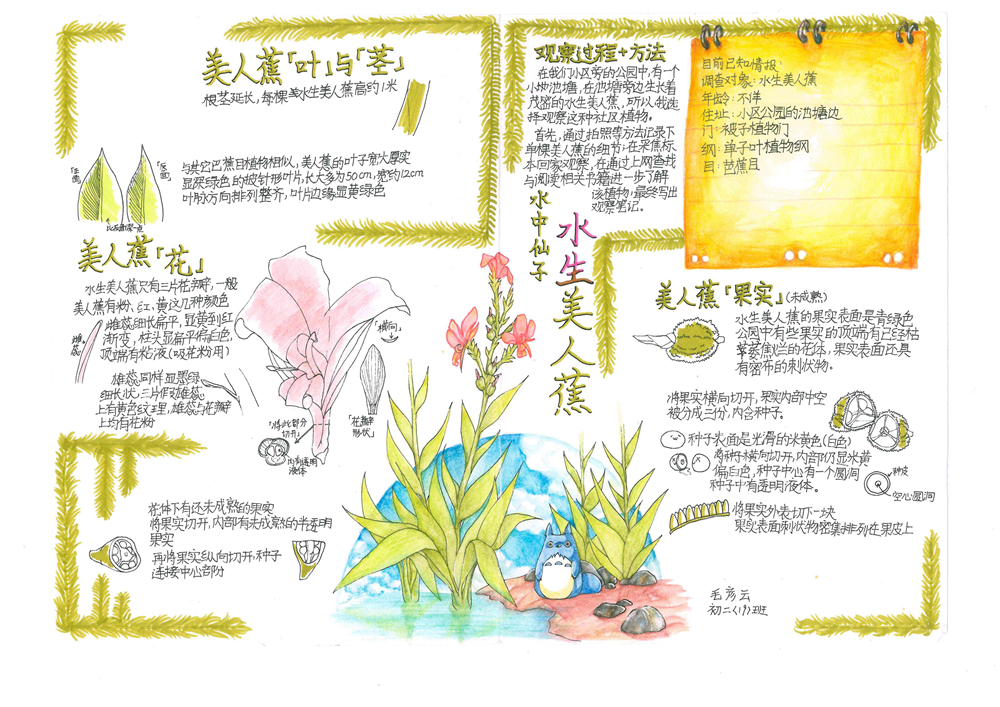 美人蕉「叶」与「茎」
根茎延长，每棵水生美人蕉高约1米
与其它芭蕉目植物相似，美人蕉的叶子宽大厚实
显深绿色的披针形叶片，长大多为50cm，宽约12cm
叶脉方向排列整齐，叶片边缘显黄绿色
正面
反面
美人蕉「花」
水生美人蕉只有三片花瓣，一般
美人蕉有粉、红、黄这几种颜色
雌蕊细长扁平，显黄到红
渐变，柱头显扁平偏白色，
顶端有粘液（吸花粉用）
雌蕊
雄蕊同样显墨绿
细长状，三片作为雄蕊
上有黄色纹理，雄蕊与花瓣
上均有花粉
「横向」
「花瓣形状」
「将此部分
切开」
内有透明
液体
花体下有还未成熟的果实
将果实切开，内部有未成熟的半透明
果实
再将果实纵向切开，种子
连接中心部分
观察过程+方法
在我们小区旁的公园中，有一个
小池塘，在池塘旁边生长着
茂密的水生美人蕉，所以我选
择观察这种社区植物。
首先，通过拍照等方法记录下
单棵美人蕉的细节，在采集标
本回家观察，在通过上网查找
与阅读相关书籍进一步了解
该植物，最终写出
观察笔记。
水中仙子
水生美人蕉
目前已知情报：
调查对象：水生美人蕉
年龄：不详
住址：小区公园的池塘边
门：被子植物门
纲：单子叶植物纲
目：芭蕉目
美人蕉『果实』（未成熟）
水生美人蕉的果实表面是青绿色
公园中有些果实的顶端有已经枯
萎焦烂的花体，果实表面还具
有密布的刺状物。
将果实横向切开，果实内部中空
被分成三份，内含种子。
种子表面是光滑的米黄色（白色）
将种子横向切开，内部仍显米黄
偏白色，种子中心有一个圆洞
种子中有透明液体。
种皮
空心圆洞
将果实外表切下一块
果实表面刺状物密集排列在果皮上
毛彦云
初二〈19〉班